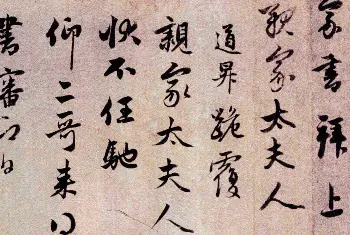 家書拜上
親家太夫人
道昇跪覆
親家太夫人
狀不任馳
仰二哥来
書審即日